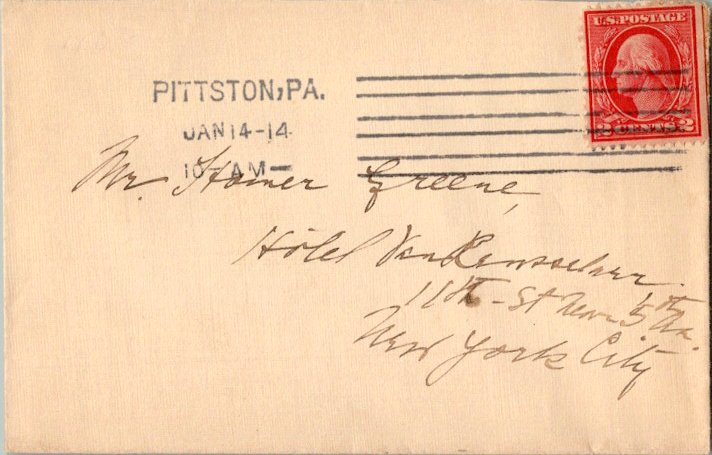 U.S. POSTAGE
2 CENTS 2
PITTSTON, PA.
JAN 14-14
10 AM
Mr. Homer Greene,
Hotel Van Rensselaer
11th - St near 5th Av.
New York City